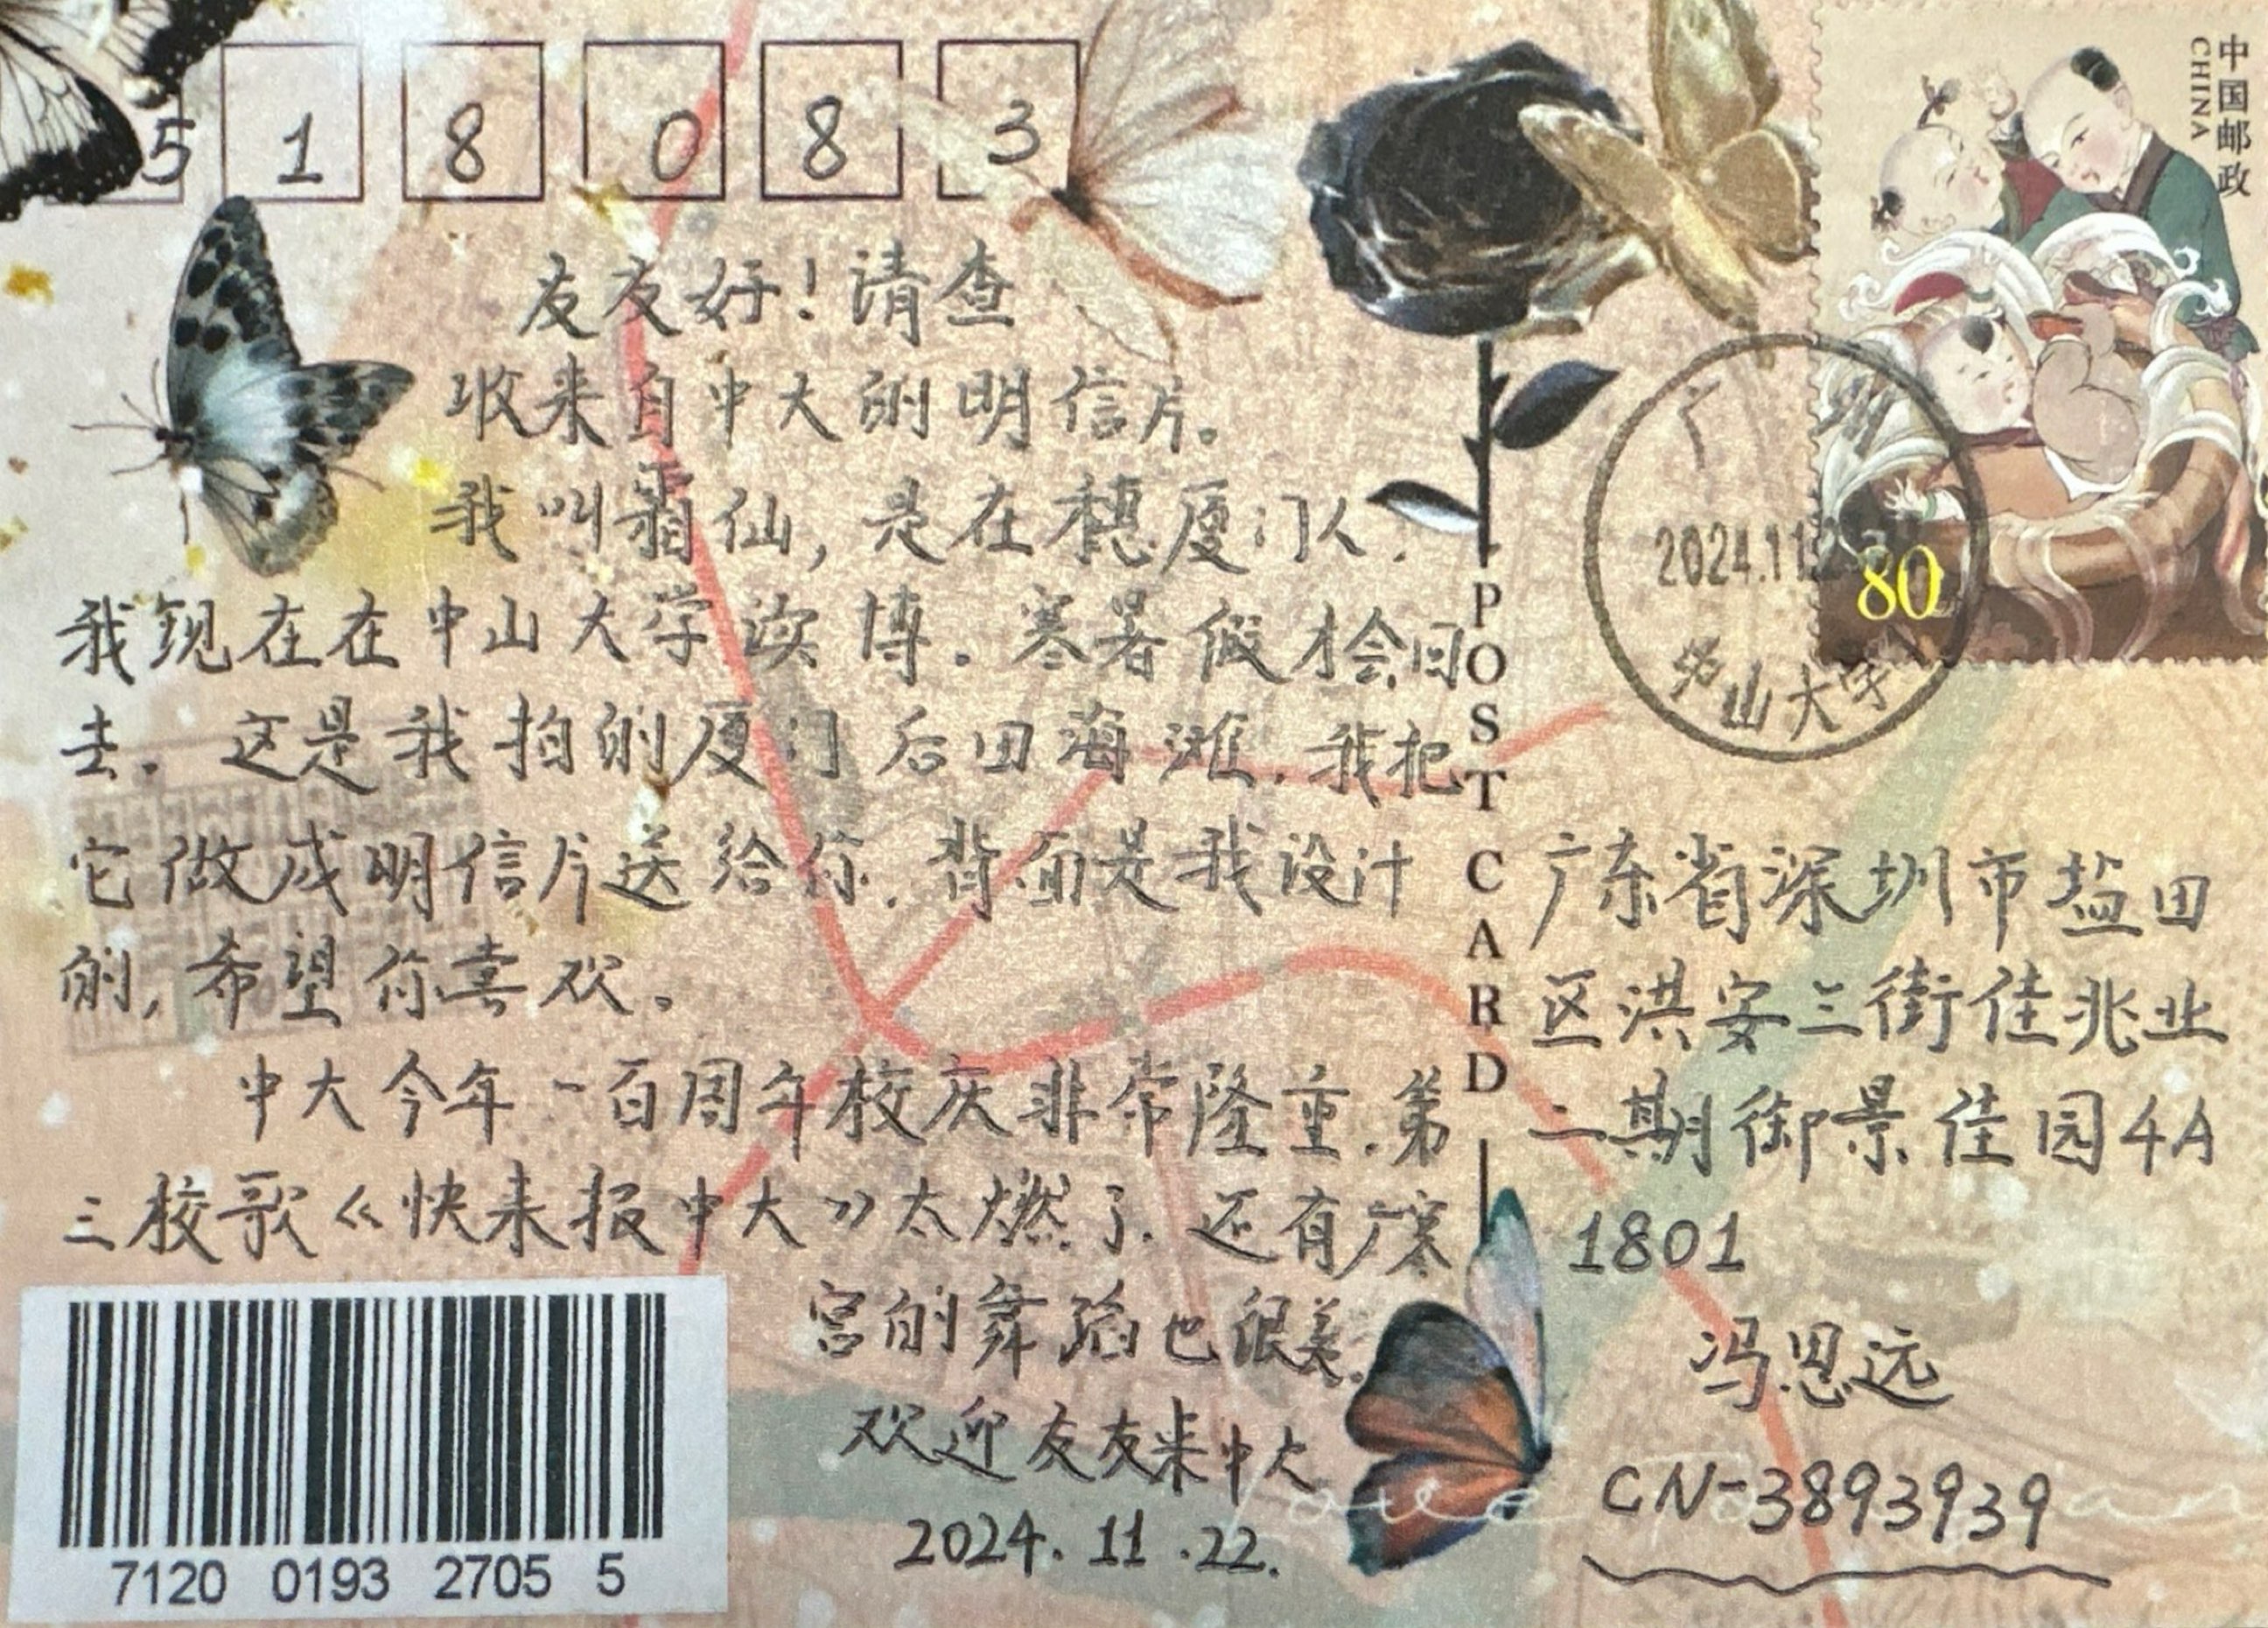 518083
友友好！请查
收来自中大的明信片。
我叫霜仙，是在穗厦门人．
我现在在中山大学读博．寒暑假才会回
去．这是我拍的厦门后田海滩．我把
它做成明信片送给你．背面是我设计
的，希望你喜欢。
中大今年一百周年校庆非常隆重．第
三校歌《快来报中大》太燃了．还有广寒
宫的舞蹈也很美．
欢迎友友来中大
2024.11.22.
7120 0193 2705 5
POST CARD
中国邮政
CHINA
80
广州
2024.11.2
中山大学
广东省深圳市盐田
区洪安三街佳兆业
二期御景佳园4A
1801
冯思远
CN-3893939